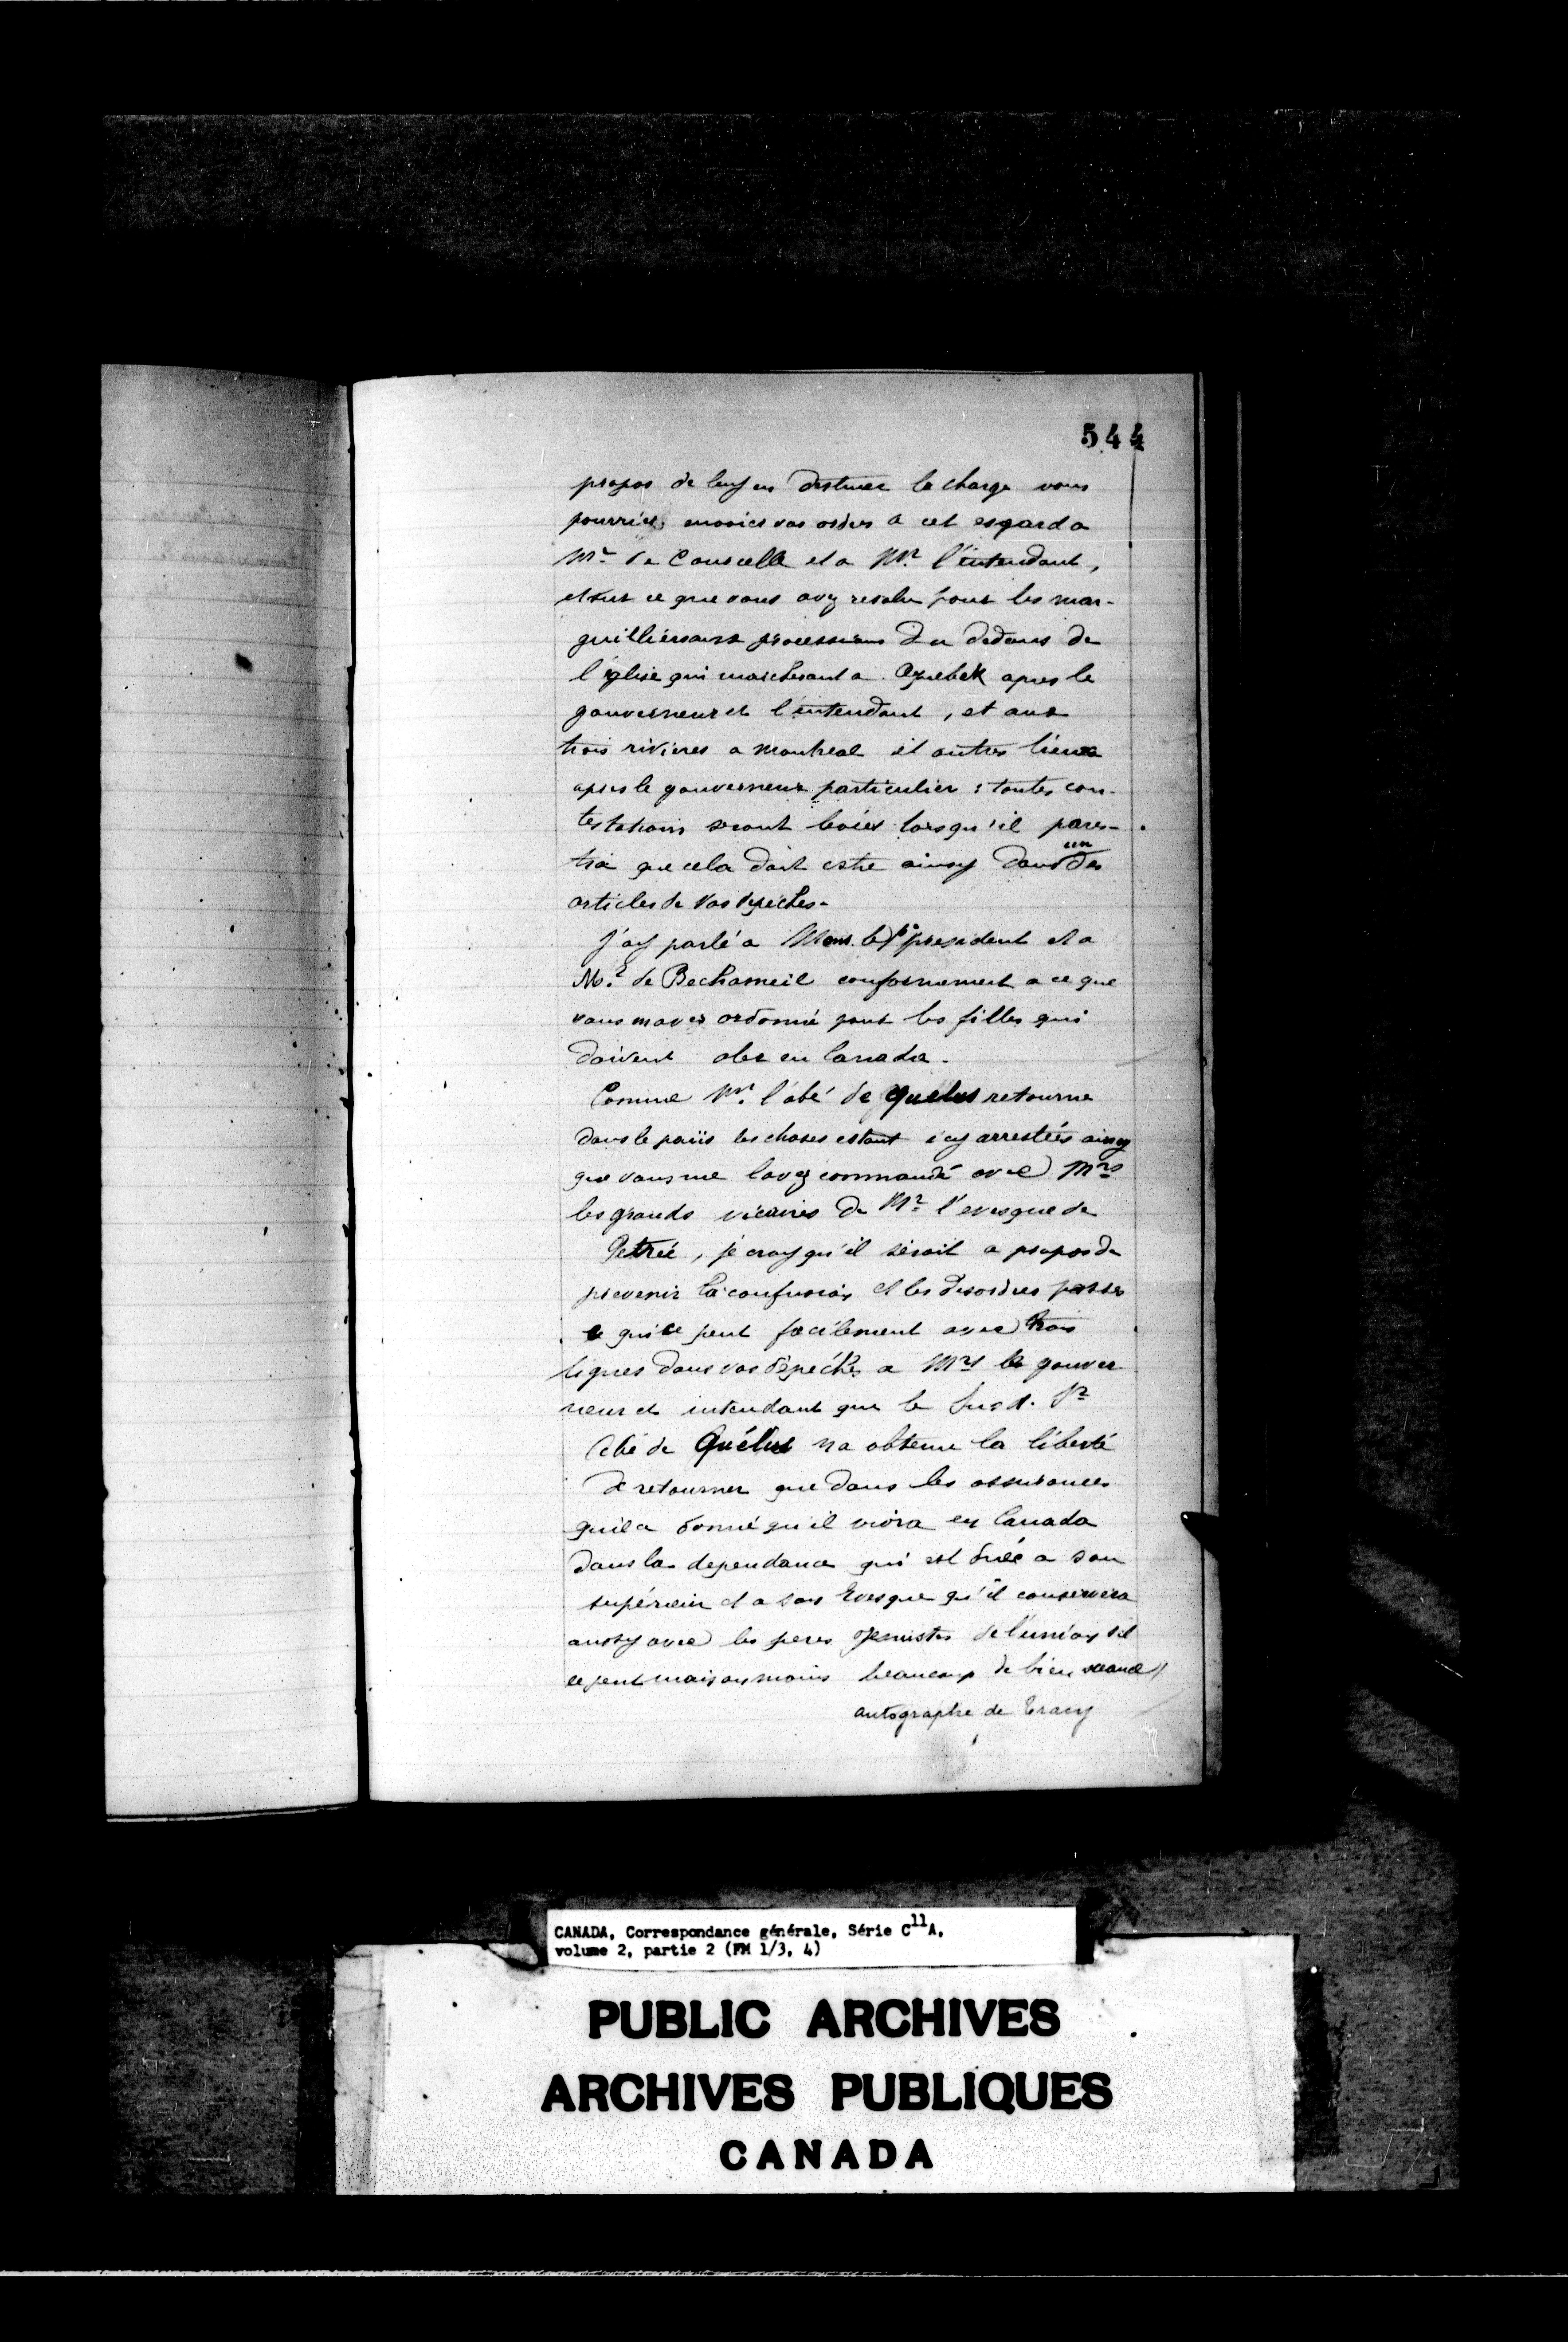 544
propos de luy en destiner la charge vous
pourriés envoier vos ordres a cet esgard a
Mr. de Courcelle et a Mr. l'intendant,
et sur ce que vous avez resolu pour les mar-
guilliers aux processions du dedans de
l'église qui marcheront a Quebek apres le
gouverneur et l'intendant, et aux
trois rivieres a montreal et autres lieux
apres le gouverneur particulier: toutes con-
testations seront levées lorsqu'il pares-
tra que cela doit estre ainsy dans un des
articles de vos depeches.
J'ay parlé a Mons. le pr. president et a
Mr. de Bechameil conformement a ce que
vous mavez ordonné pour les filles qui
doivent aler en Canada.
Comme Mr. l'abé de Quélus retourne
dans le païs les choses estant icy arrestées ainsy
que vous me lavez commandé avec Mrs
les grands vicaires de Mr. l'evesque de
Petrée, je croy qu'il seroit a propos de
prevenir la confusion et les desordres passés
ce qui se peut facilement avec trois
lignes dans vos dépéches a Mrs le gouver-
neur et intendant que le susd. Sr
Abé de Quélus na obtenu la liberté
de retourner que dans les assurances
quil a donné qu'il vivra en Canada
dans la dependance qui est duëe a son
supérieur et a son Evesque qu'il conservera
aussy avec les peres de l'union sil
se peut mais au moins beaucoup de bien
autographe de Tracy
CANADA, Correspondance générale, Série C11A,
volume 2, partie 2 (FM 1/3, 4)
PUBLIC ARCHIVES
ARCHIVES PUBLIQUES
CANADA